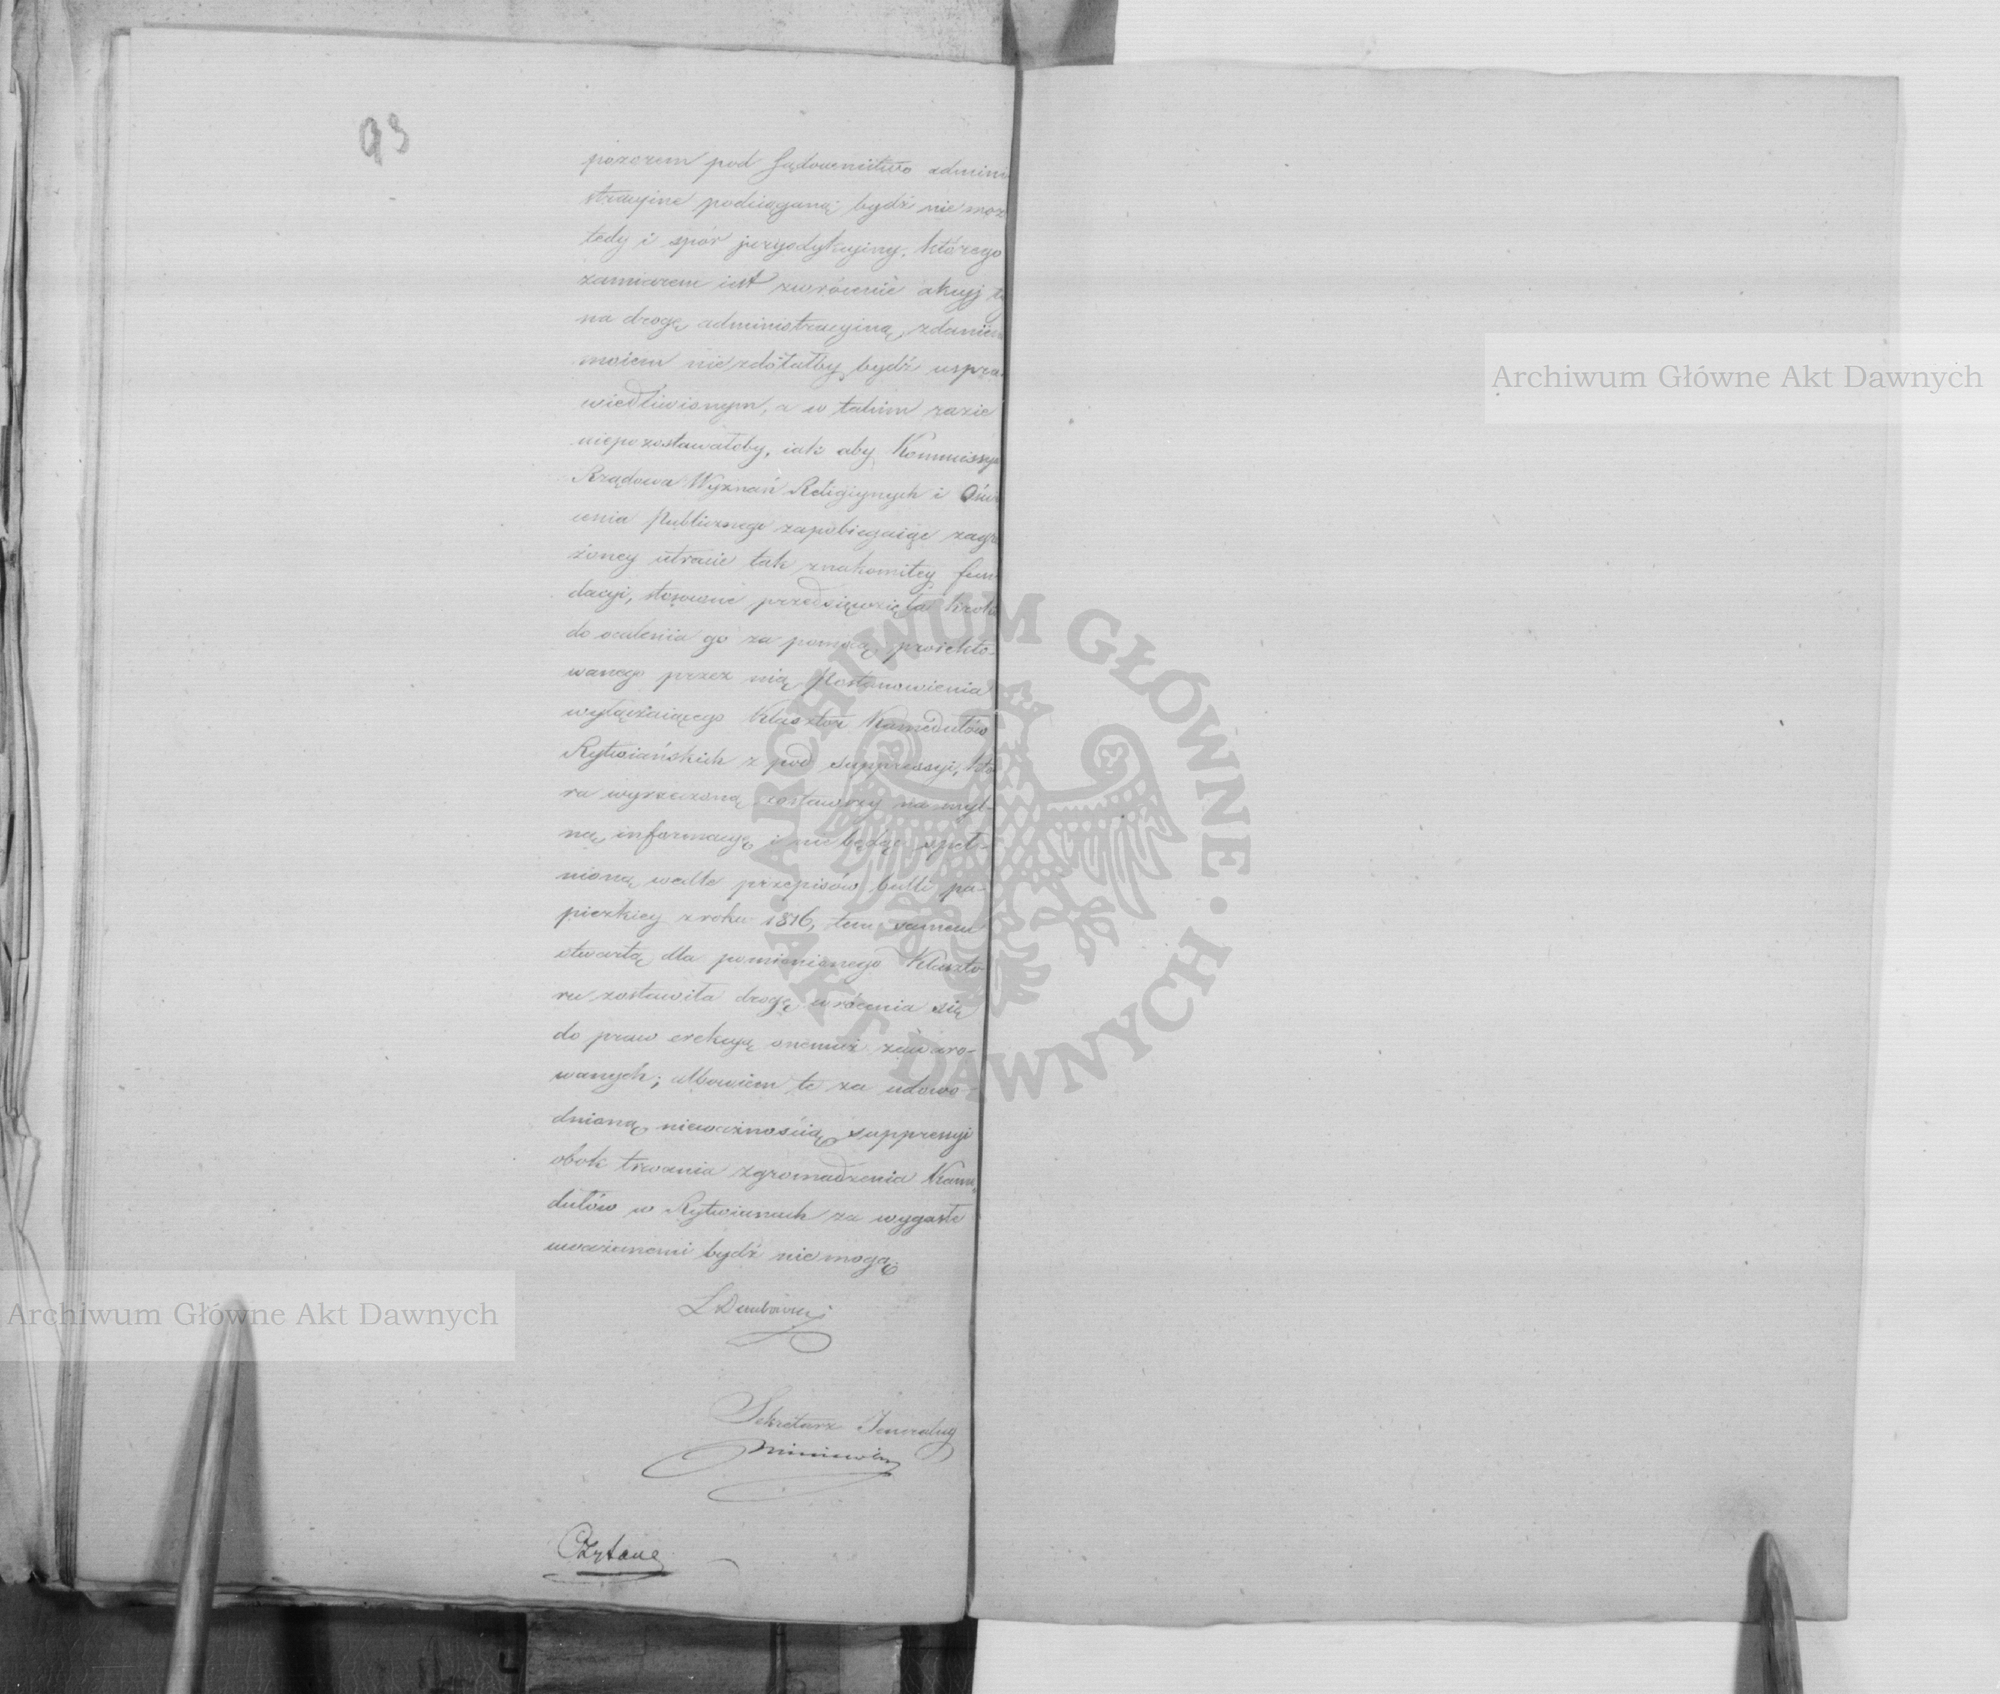 93
pozorem pod Sądownictwo admini
stracyjne podciąganą bydź nie moż
tedy i spór juryzdykcyjny, którego
zamiarem iest zwrócenie akcyj tę
na drogę administracyjną, zdaniem
moiem nie zdołałby bydź uspra-
wiedliwionym, a w takim razie
niepozostawałoby, iak aby Kommissya
Rządowa Wyznań Religijnych i Oświe
cenia Publicznego zapobiegaiąc zagro
żoney utracie tak znakomitey fun
dacyi, stosowne przedsięwzięła kroki
do ocalenia go za pomocą proiekto-
wanego przez nią Postanowienia
wyłączaiącego Klasztor Kamedułów
Rytwiańskich z pod suppressyi, któ
ra wyrzeczoną zostawszy na myl-
ną informacyę i nie będąc speł-
nioną wedle przepisów bulli pa-
piezkiey z roku 1816, tem samem
otwartą dla pomienionego Klaszto
ru zostawiła drogę wrócenia się
do praw erekcyą onemuż zawaro-
wanych; albowiem te za udowo-
dnioną nieważnością suppressyi
obok trwania zgromadzenia Kame
dułów w Rytwianach za wygasłe
uważanemi bydź nie mogą.
L Dembowski
Sekretarz Jeneralny
Czytane
Archiwum Główne Akt Dawnych
Archiwum Główne Akt Dawnych
ARCHIWUM GŁÓWNE AKT DAWNYCH